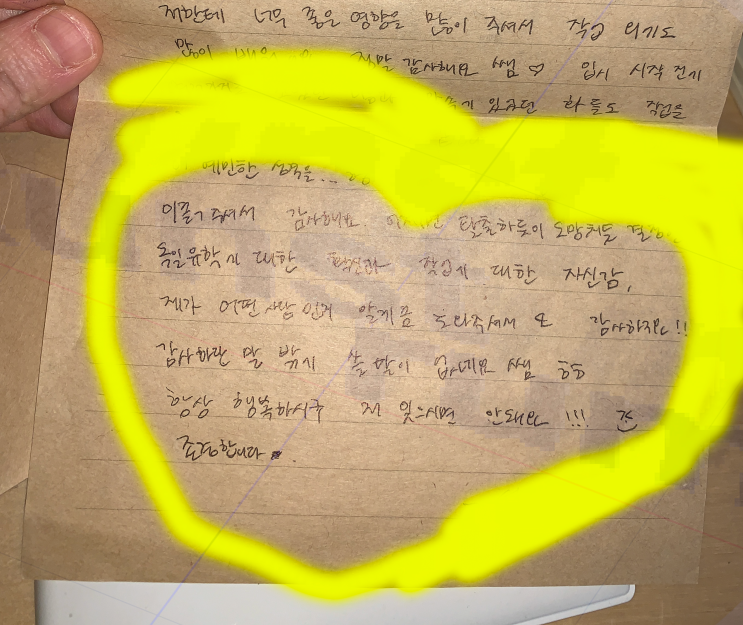 저한테 너무 좋은 영향을 많이 주셔서 작업 외기도
많이 정말 감사해요 쌤 ♡ 입시 시작 전기
있었던 하들도 작업을
예민한 성격을...
이끌어주셔서 감사해요. 탈출하듯이 도망치듯 결정
독일유학에 대한 확신과 작업에 대한 자신감,
제가 어떤 사람인지 알게끔 도와주셔서 또 감사하지요!!
감사하단 말 밖에 쓸 말이 없네요 쌤 ㅎㅎ
항상 행복하시구 저 잊으시면 안돼요!!!
존경합니다.